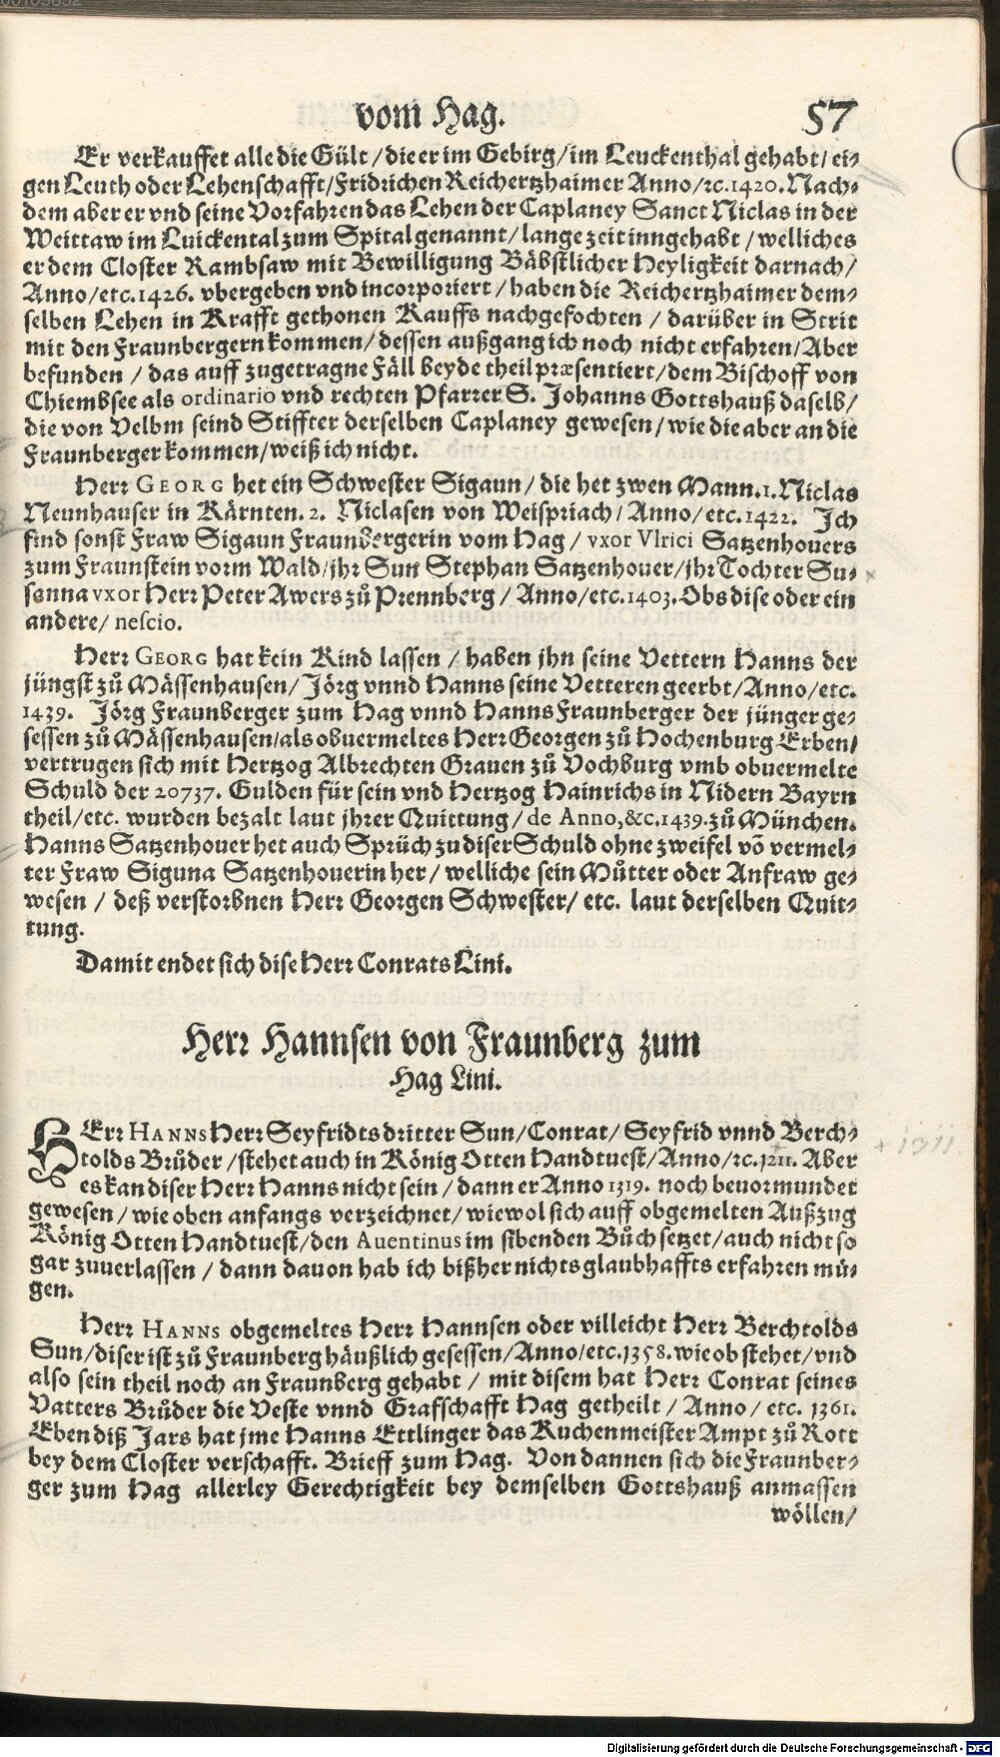 vom Hag. 57
Er verkauffet alle die Gült / die er im Gebirg / im Leuckenthal gehabt / ei-
gen Leuth oder Lehenschafft / Fridrichen Reichertzhaimer Anno / ꝛc. 1420. Nach-
dem aber er vnd seine Vorfahren das Lehen der Caplaney Sanct Niclas in der
Weittaw im Luickental zum Spital genannt / lange zeit inngehabt / welliches
er dem Closter Rambsaw mit Bewilligung Bäbstlicher Heyligkeit darnach /
Anno / etc. 1426. vbergeben vnd incorporiert / haben die Reichertzhaimer dem-
selben Lehen in Krafft gethonen Kauffs nachgefochten / darüber in Strit
mit den Fraunbergern kommen / dessen außgang ich noch nicht erfahren / Aber
befunden / das auff zugetragne Fäll beyde theil præsentiert / dem Bischoff von
Chiembsee als ordinario vnd rechten Pfarrer S. Johanns Gottshauß daselb /
die von Velbm seind Stiffter derselben Caplaney gewesen / wie die aber an die
Fraunberger kommen / weiß ich nicht.
Herr GEORG het ein Schwester Sigaun / die het zwen Mann. 1. Niclas
Neunhauser in Kärnten. 2. Niclasen von Weispriach / Anno / etc. 1422. Ich
find sonst Fraw Sigaun Fraunbergerin vom Hag / vxor Vlrici Satzenhouers
zum Fraunstein vorm Wald / jhr Sun Stephan Satzenhouer / jhr Tochter Su-
sanna vxor Herr Peter Awers zů Prennberg / Anno / etc. 1403. Obs dise oder ein
andere / nescio.
Herr GEORG hat kein Kind lassen / haben jhn seine Vettern Hanns der
jüngst zů Mässenhausen / Jörg vnnd Hanns seine Vetteren geerbt / Anno / etc.
1439. Jörg Fraunberger zum Hag vnnd Hanns Fraunberger der jünger ge-
sessen zů Mässenhausen / als obuermeltes Herr Georgen zů Hochenburg Erben /
vertrugen sich mit Hertzog Albrechten Grauen zů Vochburg vmb obuermelte
Schuld der 20737. Gulden für sein vnd Hertzog Hainrichs in Nidern Bayrn
theil / etc. wurden bezalt laut jhrer Quittung / de Anno, &c. 1439. zů München.
Hanns Satzenhouer het auch Sprüch zu diser Schuld ohne zweifel võ vermel-
ter Fraw Siguna Satzenhouerin her / welliche sein Můtter oder Anfraw ge-
wesen / deß verstorbnen Herr Georgen Schwester / etc. laut derselben Quit-
tung.
Damit endet sich dise Herr Conrats Lini.
Herr Hannsen von Fraunberg zum
Hag Lini.
HErr HANNS Herr Seyfridts dritter Sun / Conrat / Seyfrid vnnd Berch-
tolds Brůder / stehet auch in König Otten Handtuest / Anno / ꝛc. 1211. Aber
es kan diser Herr Hanns nicht sein / dann er Anno 1319. noch beuormundet
gewesen / wie oben anfangs verzeichnet / wiewol sich auff obgemelten Außzug
König Otten Handtuest / den Auentinus im sibenden Bůch setzet / auch nicht so
gar zuuerlassen / dann dauon hab ich bißher nichts glaubhaffts erfahren mü-
gen.
+ 1311.
Herr HANNS obgemeltes Herr Hannsen oder villeicht Herr Berchtolds
Sun / diser ist zů Fraunberg häußlich gesessen / Anno / etc. 1358. wie ob stehet / vnd
also sein theil noch an Fraunberg gehabt / mit disem hat Herr Conrat seines
Vatters Brůder die Veste vnnd Grafschafft Hag getheilt / Anno / etc. 1361.
Eben diß Jars hat jme Hanns Ettlinger das Kuchenmeister Ampt zů Rott
bey dem Closter verschafft. Brieff zum Hag. Von dannen sich die Fraunber-
ger zum Hag allerley Gerechtigkeit bey demselben Gottshauß anmassen
wöllen /
Digitalisierung gefördert durch die Deutsche Forschungsgemeinschaft - DFG